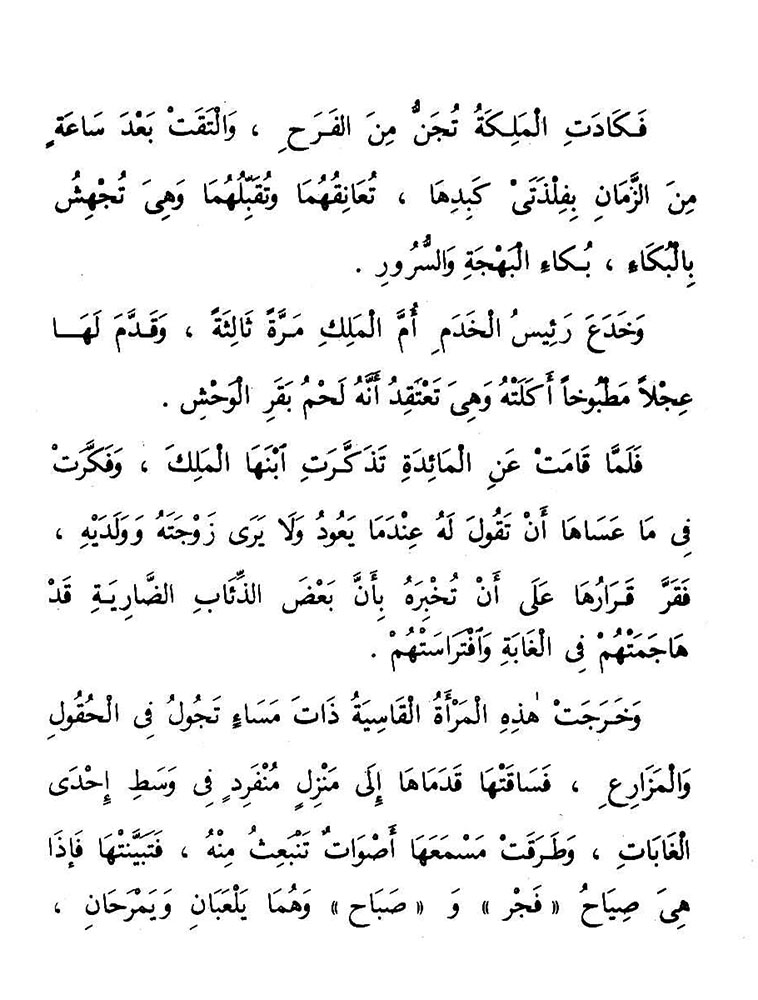 فَكَادَتِ الْمَلِكَةُ تُجَنُّ مِنَ الفَرَحِ ، وَالْتَقَتْ بَعْدَ سَاعَةٍ
مِنَ الزَّمَانِ بِفِلْذَتَىْ كَبِدِهَا ، تُعَانِقُهُمَا وَتُقَبِّلُهُمَا وَهِىَ تُجْهِشُ
بِالْبُكَاءِ ، بُكاءِ الْبَهْجَةِ وَالسُّرُورِ .
وَخَدَعَ رَئِيسُ الْخَدَمِ أُمَّ الْمَلِكِ مَرَّةً ثَالِثَةً ، وَقَدَّمَ لَهَا
عِجْلاً مَطْبُوخاً أَكَلَتْهُ وَهِىَ تَعْتَقِدُ أَنَّهُ لَحْمُ بَقَرِ الْوَحْشِ .
فَلَمَّا قَامَتْ عَنِ الْمَائِدَةِ تَذَكَّرَتِ ٱبْنَهَا الْمَلِكَ ، وَفَكَّرَتْ
فِى مَا عَسَاهَا أَنْ تَقُولَ لَهُ عِنْدَمَا يَعُودُ وَلَا يَرَى زَوْجَتَهُ وَوَلَدَيْهِ ،
فَقَرَّ قَرَارُهَا عَلَى أَنْ تُخْبِرَهُ بِأَنَّ بَعْضَ الذِّئَابِ الضَّارِيَةِ قَدْ
هَاجَمَتْهُمْ فِى الْغَابَةِ وَٱفْتَرَاسَتْهُمْ .
وَخَرَجَتْ هٰذِهِ الْمَرْأَةُ الْقَاسِيَةُ ذَاتَ مَسَاءٍ تَجُولُ فِى الْحُقُولِ
وَالْمَزَارِعِ ، فَسَاقَتْهَا قَدَمَاهَا إِلَى مَنْزِلٍ مُنْفَرِدٍ فِى وَسَطِ إِحْدَى
الْغَابَاتِ ، وَطَرَقَتْ مَسْمَعَهَا أَصْوَاتٌ تَنْبَعِثُ مِنْهُ ، فَتَبَيَّنَتْهَا فَإِذَا
هِىَ صِيَاحُ « فَجْر » وَ « صَبَاح » وَهُمَا يَلْعَبَانِ وَيَمْرَحَانِ ،